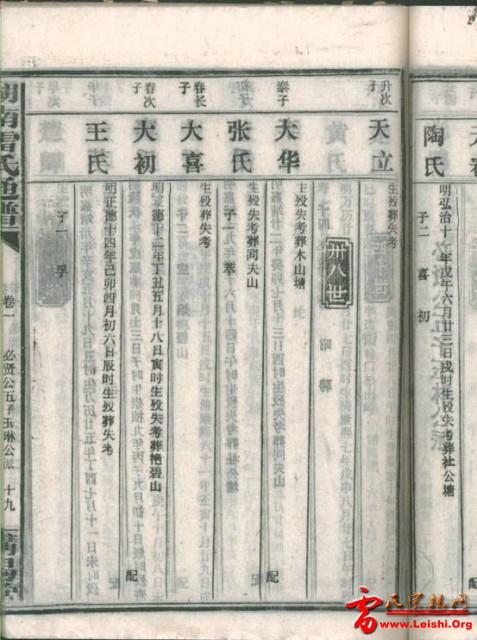 陶氏 明弘治十一年戌午六月廿三日戌时生殁失考葬社公塘
子二 喜 初
升次子 天立 生殁葬失考
卅八世
泰子 大华 生殁失考葬木山塘 配
张氏 生殁失考葬同夫山
子一 萃
春长子 大喜 生殁葬失考
春次子 大初 明正德十二年丁丑五月十八日寅时生殁失考葬艳碧山 配
王氏 明正德十四年己卯四月初六日辰时生殁葬失考
子一 孚
湖南雷氏通谱 卷一 必贤公五子玉琳公派 十九
www.Leishi.Org